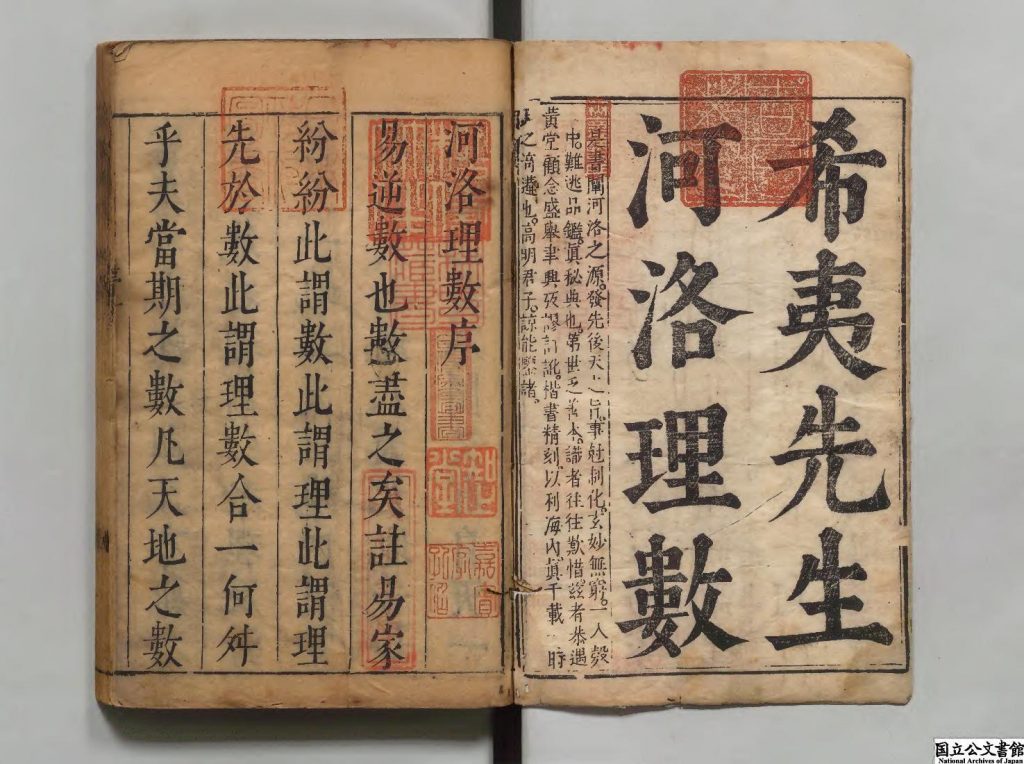 希夷先生
河洛理數
是書闡河洛之源發先後天之旨事社制化玄妙無窮一入彀
中難逃品鑑眞秘典也第世乏善本識者往往歎惜玆者恭遇
黃堂顧念盛舉聿興
楷書精刻以利海內眞千載一時
之高明君子諒能鑒諸
河洛理數序
易逆數也數盡之矣註易家
紛紛此謂數此謂理此謂理
先於數此謂理數合一何舛
乎夫當期之數凡天地之數
知堂
国立公文書館
National Archives of Japan